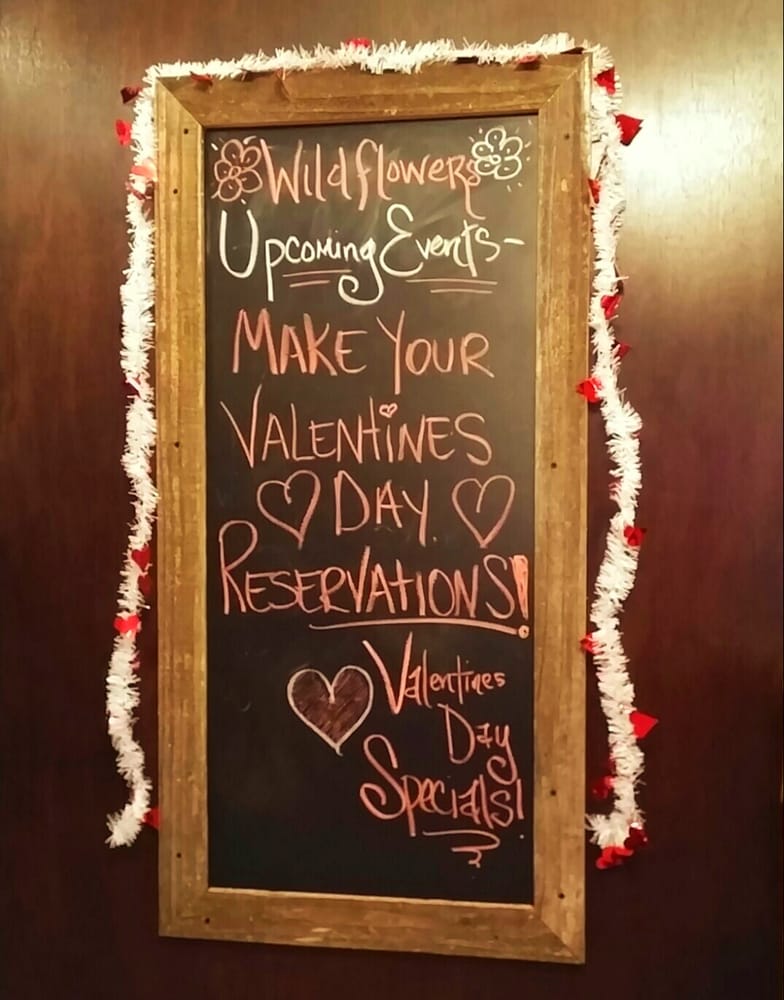 Wildflowers
Upcoming Events-
MAKE YOUR
VALENTINES
DAY
RESERVATIONS!
Valentines
Day
Specials!